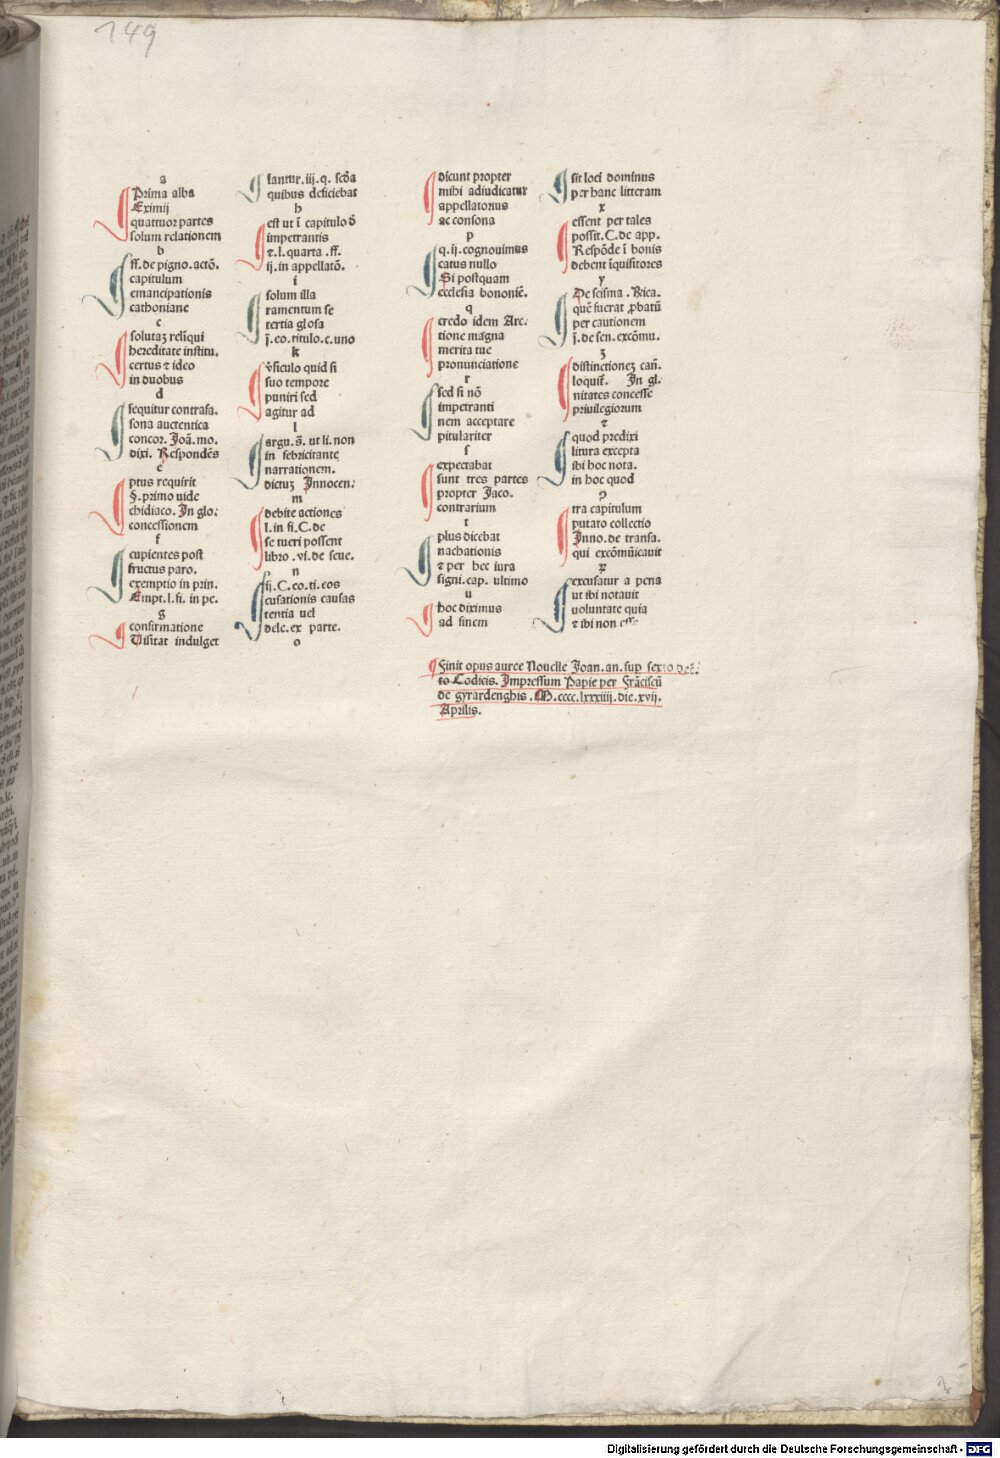 149
a
Prima alba
Eximij
quattuor partes
solum relationem
b
ff. de pigno. actō.
capitulum
emancipationis
cathoniane
c
solutaꝫ relīqui
hereditate institu.
certus ⁊ ideo
in duobus
d
sequitur contrasa.
sona auctentica
concor. Joā. mo.
dixi. Respondēs
e
ptus requirit
§. primo uide
chidiaco. In glo:
concessionem
f
cupientes post
fructus paro.
exemptio in prin.
Empt. l. fi. in pe.
g
confirmatione
Uisitat indulget
lantur. iij. q. scđa
quibus deficiebat
h
est ut ī capitulo đ
impetrantis
⁊. l. quarta. ff.
ij. in appellatō.
i
solum illa
ramentum se
tertia glosa
j̄. eo. titulo. c. uno
k
v̄siculo quid si
suo tempore
puniri sed
agitur ad
l
argu. s̄. ut li. non
in febricitante
narrationem.
dictuꝫ Innocen:
m
debite actiones
l. in fi. C. de
se tueri possent
libro. vi. de seue.
n
ij. C. eo. ti. eos
cusationis causas
tentia uel
dele. ex parte.
o
dicunt propter
mihi adiudicatur
appellatorius
ac consona
p
q. ij. cognouimus
catus nullo
Si postquam
ecclesia bononiē.
q
credo idem Arc:
tione magna
merita tue
pronunciatione
r
sed si nō
impetranti
nem acceptare
pitulariter
ſ
expectabat
sunt tres partes
propter Jaco.
contrarium
t
plus dicebat
nachationis
⁊ per hec iura
signi. cap. ultimo
u
hoc diximus
ad finem
sit loci dominus
per hanc litteram
x
essent per tales
possit. C. de app.
Respōde ī bonis
debent īquisitores
y
De scisma. Rica.
quē fuerat ꝓbatū
per cautionem
j̄. de sen. excōmu.
ꝫ
distinctioneꝫ cań.
loquiť. In gl.
nitates concesse
priuilegiorum
⁊
quod predixi
litura excepta
ibi hoc nota.
in hoc quod
ꝯ
tra capitulum
putato collectio
Inno. de transa.
qui excōmūicauit
ꝝ
excusatur a pena
ut ibi notauit
uoluntate quia
⁊ ibi non esse
Finit opus auree Nouelle Joan. an. sup sexto decre:
to Codicis. Impressum Papie per Frāciscū
de gyrardenghis. M. cccc. lxxxiiij. die. xvij.
Aprilis.
Digitalisierung gefördert durch die Deutsche Forschungsgemeinschaft - DFG